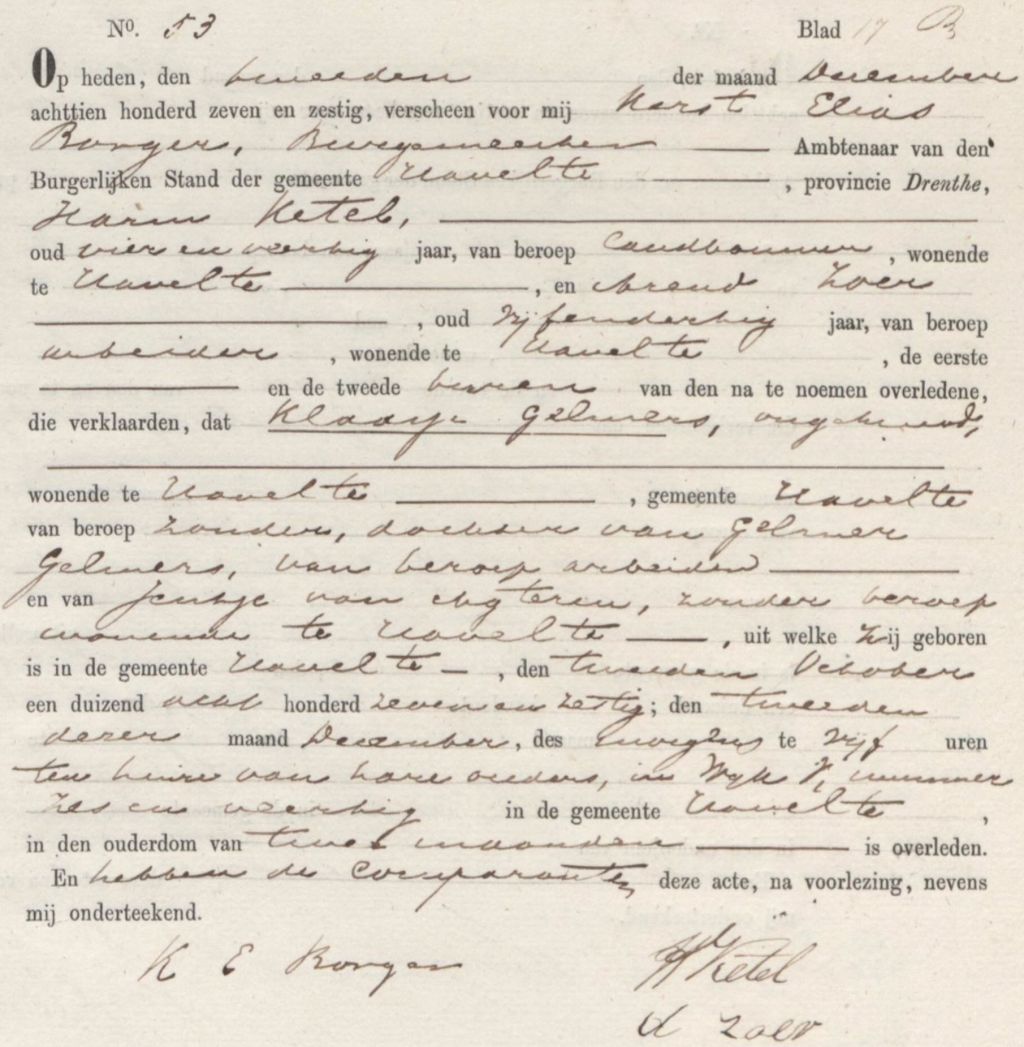 No. 53 Blad 17 B
Op heden, den tweeden der maand December
achttien honderd zeven en zestig, verscheen voor mij Karst Elias
Borger, Burgemeester Ambtenaar van den
Burgerlijken Stand der gemeente Havelte , provincie Drenthe,
Harm Ketel,
oud vier en veertig jaar, van beroep landbouwer , wonende
te Havelte , en Arend Zoer
, oud vijfendertig jaar, van beroep
arbeider , wonende te Havelte , de eerste
en de tweede buren van den na te noemen overledene,
die verklaarden, dat Klaasje Gelmers, ongehuwd,
wonende te Havelte , gemeente Havelte
van beroep zonder, dochter van Gelmer
Gelmers, van beroep arbeider
en van Jentje van Agteren, zonder beroep
wonende te Havelte , uit welke zij geboren
is in de gemeente Havelte , den tweeden October
een duizend acht honderd zeven en zestig; den tweeden
dezer maand December, des morgens te vijf uren
ten huize van hare ouders, in Wyk nummer
zes en veertig in de gemeente Havelte ,
in den ouderdom van twee maanden is overleden.
En hebben de Comparanten deze acte, na voorlezing, nevens
mij onderteekend.
K E Borger H Ketel
A Zoer